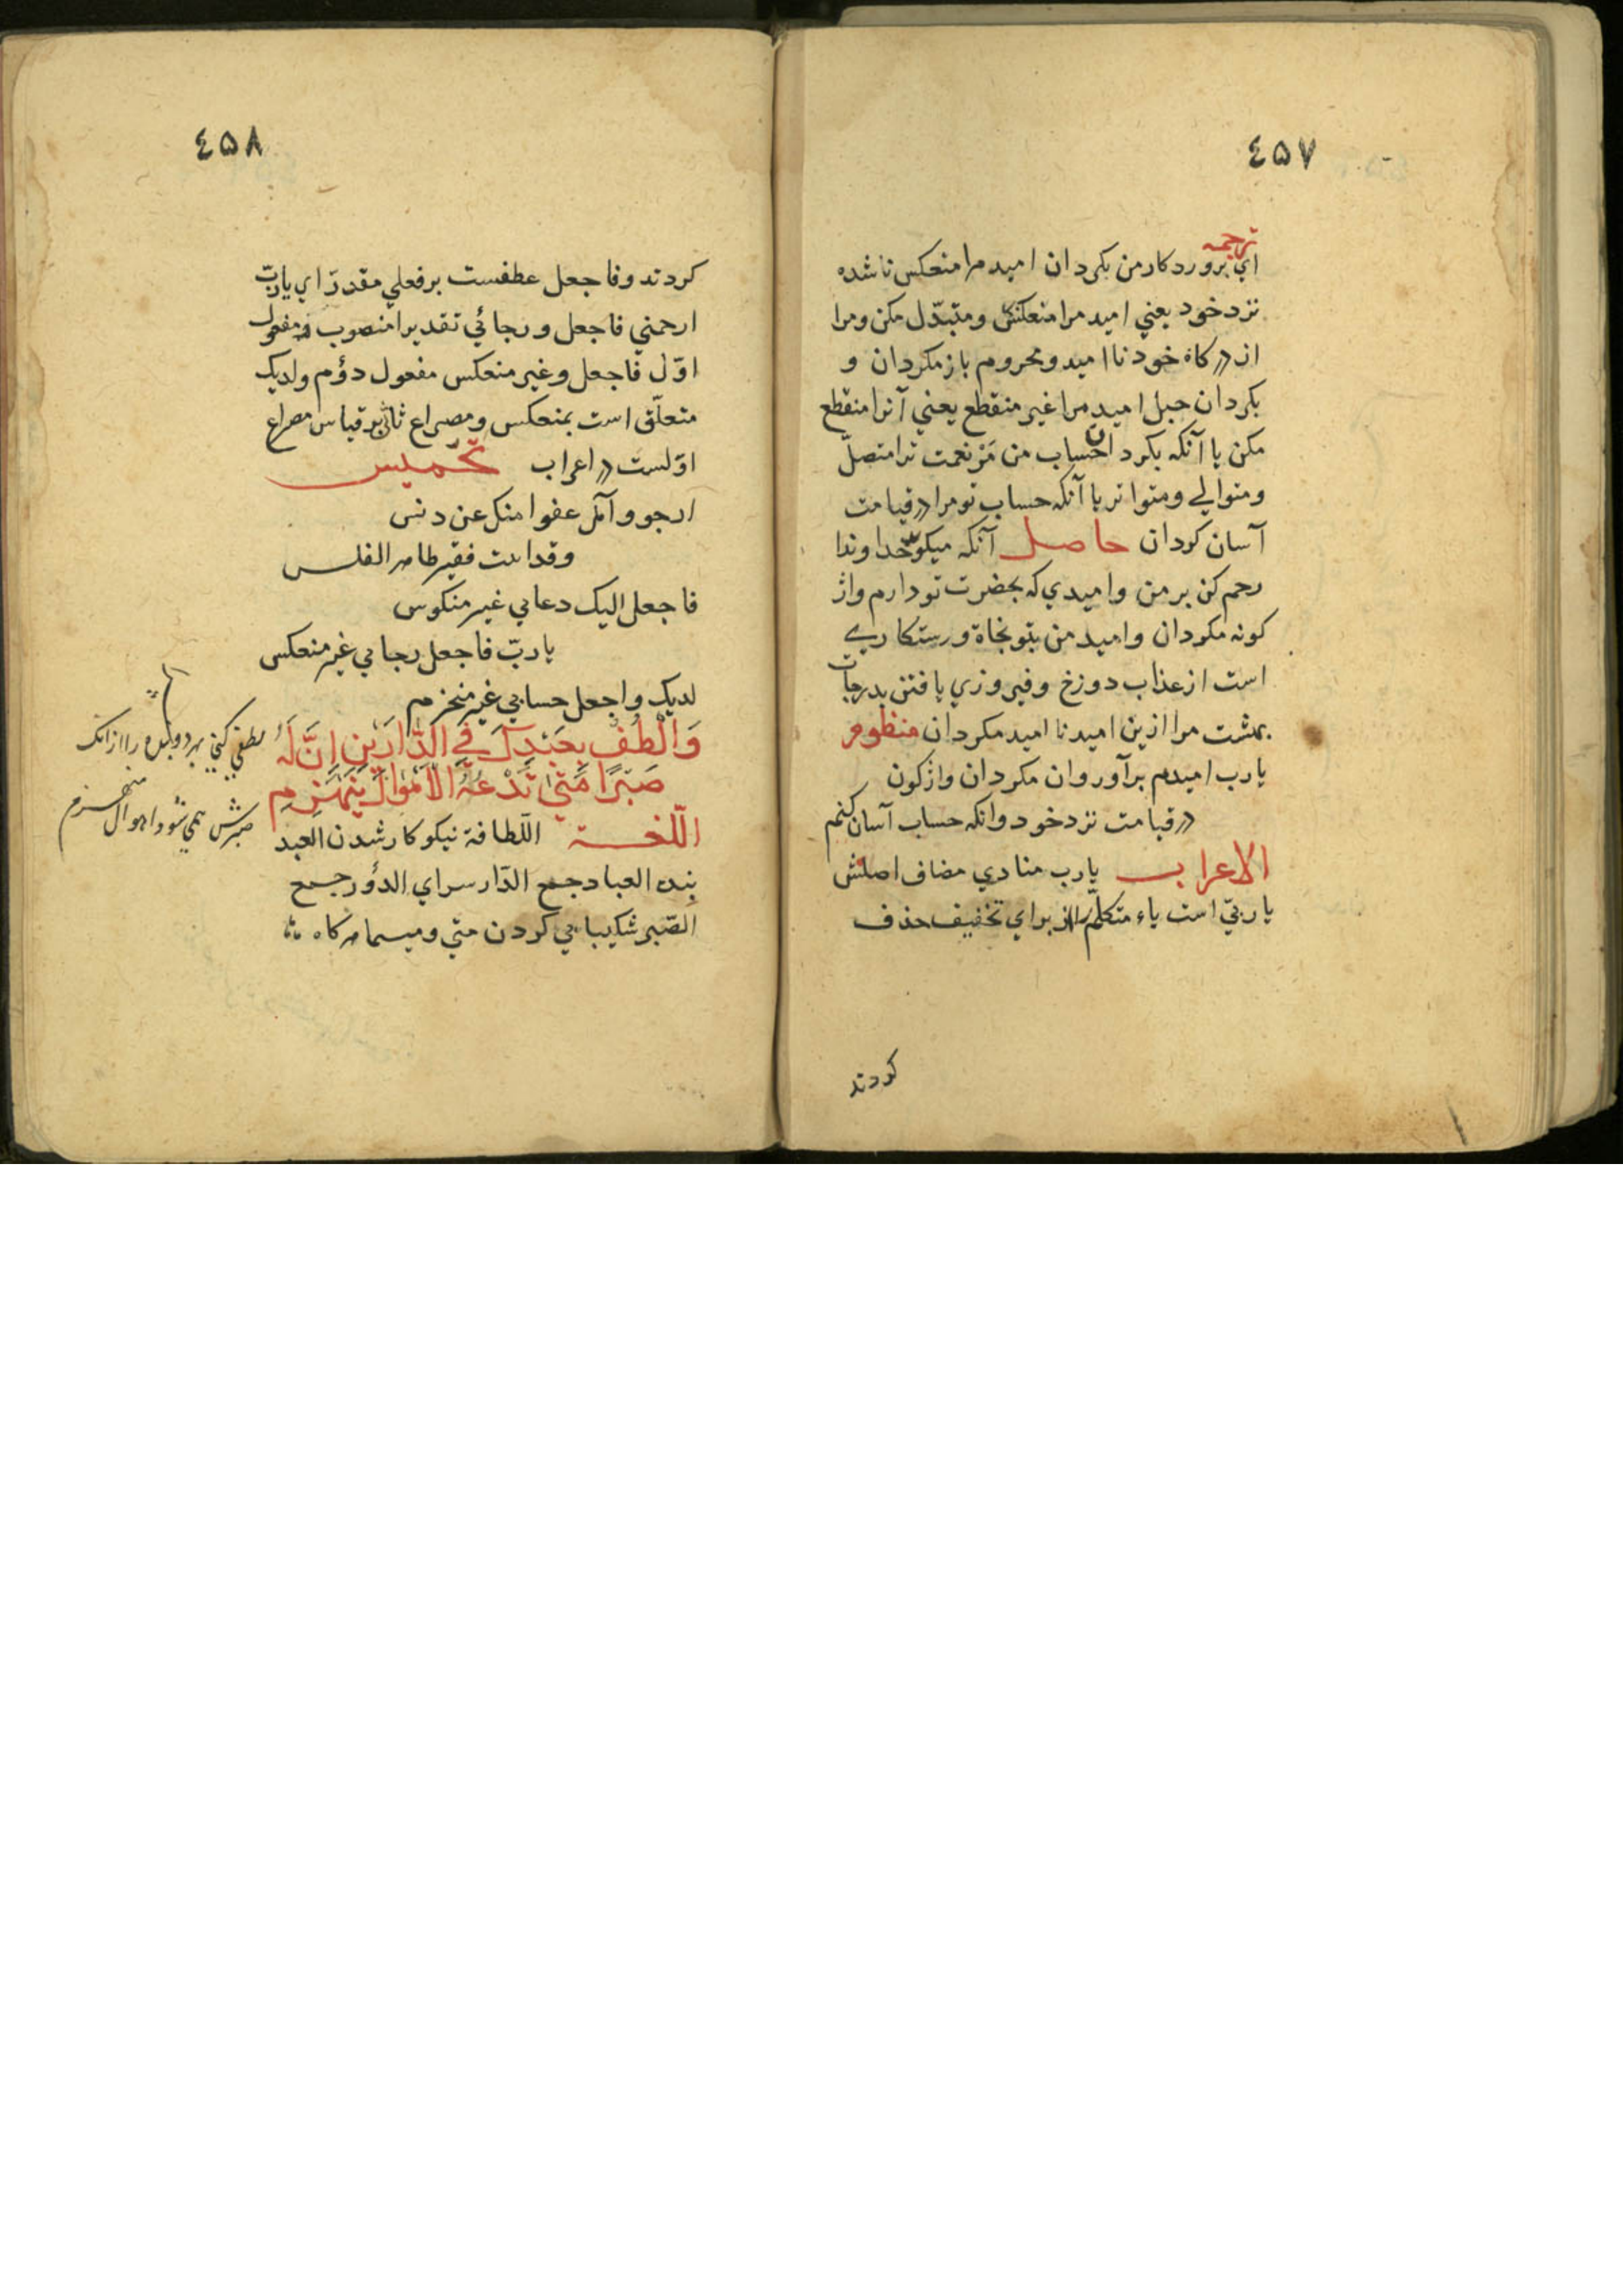 ٤۵٧
ترجمه
اي پروردكار من بكردان اميد مرا منعكس ناشده
نزد خود يعني اميد مرا منعكس و متبدّل مكن و مرا
از دركاه خود نااميد و محروم باز مكردان و
بكردان حبل اميد مرا غير منقطع يعني آنرا منقطع
مكن يا آنكه بكردان حساب من مَر نعمت ترا متصلّ
و متوالي و متواتر يا آنكه حساب تو مرا در قيامت
آسان كردان حاصل آنكه ميكويد خداوندا
رحم كن بر من و اميدي كه بحضرت تو دارم واژ
كونه مكردان و اميد من بتو نجاة و رستكاري
است از عذاب دوزخ و فيروزي يافتن بدرجات
بهشت مرا ازين اميد نااميد مكردان منظوم
يارب اميدم برآور وان مكردان واژكون
در قيامت نزد خود وانكه حساب آسان كنم
الاعراب يارب منادي مضاف اصلش
يا ربّي است ياء متكلّم را از براي تخفيف حذف
كردند
٤۵٨
كردند وفاجعل عطفست بر فعلي مقدرّ اي ياربّ
ارحمني فاجعل و رجائي تقديرا منصوب و مفعول
اوّل فاجعل و غير منعكس مفعول دؤم ولديك
متعلّق است بمنعكس و مصراع ثاني بر قياس مصراع
اوّلست در اعراب تخميس
ارجو وآمل عفوا منك عن دنس
وقد اتيت فقير ظاهر الفلس
فاجعل اليك دعايي غير منكوس
ياربّ فاجعل رجايي غير منعكس
لديك واجعل حسابي غير منخرم
وَالْطُفْ بِعَبْدِكَ فِي الدَّارَيْنِ اِنَّ لَهُ
صَبْرًا مَتٰي تَدْعُهُ الْاَهْوَالُ يَنْهَزِمِ
اللّغة اللّطافة نيكو كار شدن العبد
بنده العباد جمع الدّار سراي الدؤر جمع
الصّبر شكيبايي كردن متي و ميسما هركاه
لطفي كني بهر دو بنده را ازانك
صبرش همي شود اهوال منهزم